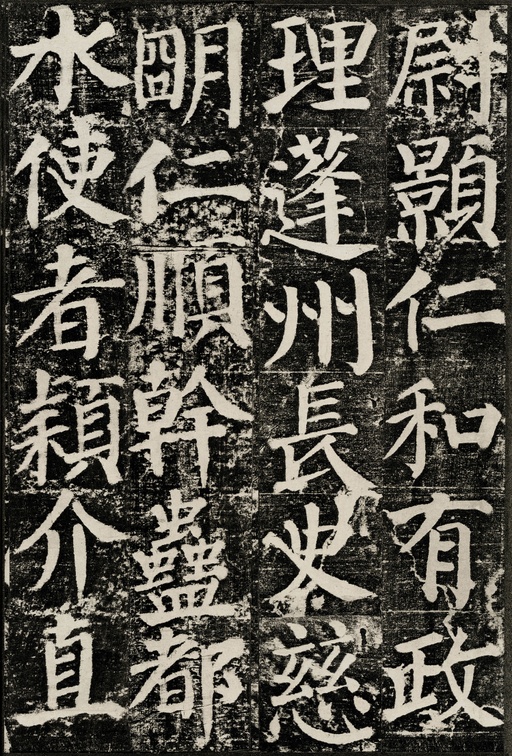 尉顥仁和有政
理蓬州長史慈
明仁順幹蠱都
水使者頴介直